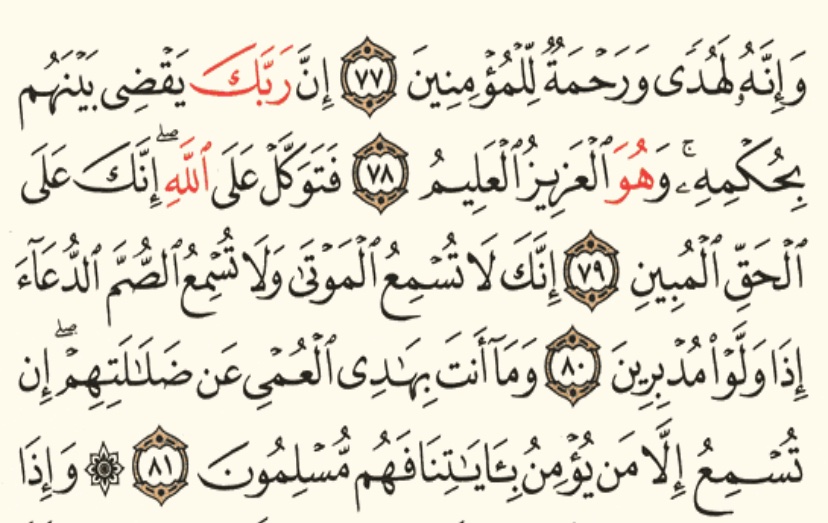 وَإِنَّهُۥ لَهُدًى وَرَحْمَةٌ لِّلْمُؤْمِنِينَ ٧٧ إِنَّ رَبَّكَ يَقْضِى بَيْنَهُم
بِحُكْمِهِۦ ۚ وَهُوَ ٱلْعَزِيزُ ٱلْعَلِيمُ ٧٨ فَتَوَكَّلْ عَلَى ٱللَّهِ ۖ إِنَّكَ عَلَى
ٱلْحَقِّ ٱلْمُبِينِ ٧٩ إِنَّكَ لَا تُسْمِعُ ٱلْمَوْتَىٰ وَلَا تُسْمِعُ ٱلصُّمَّ ٱلدُّعَآءَ
إِذَا وَلَّوْا۟ مُدْبِرِينَ ٨٠ وَمَآ أَنتَ بِهَـٰدِى ٱلْعُمْىِ عَن ضَلَـٰلَتِهِمْ ۖ إِن
تُسْمِعُ إِلَّا مَن يُؤْمِنُ بِـَٔايَـٰتِنَا فَهُم مُّسْلِمُونَ ٨١ ۞ وَإِذَا